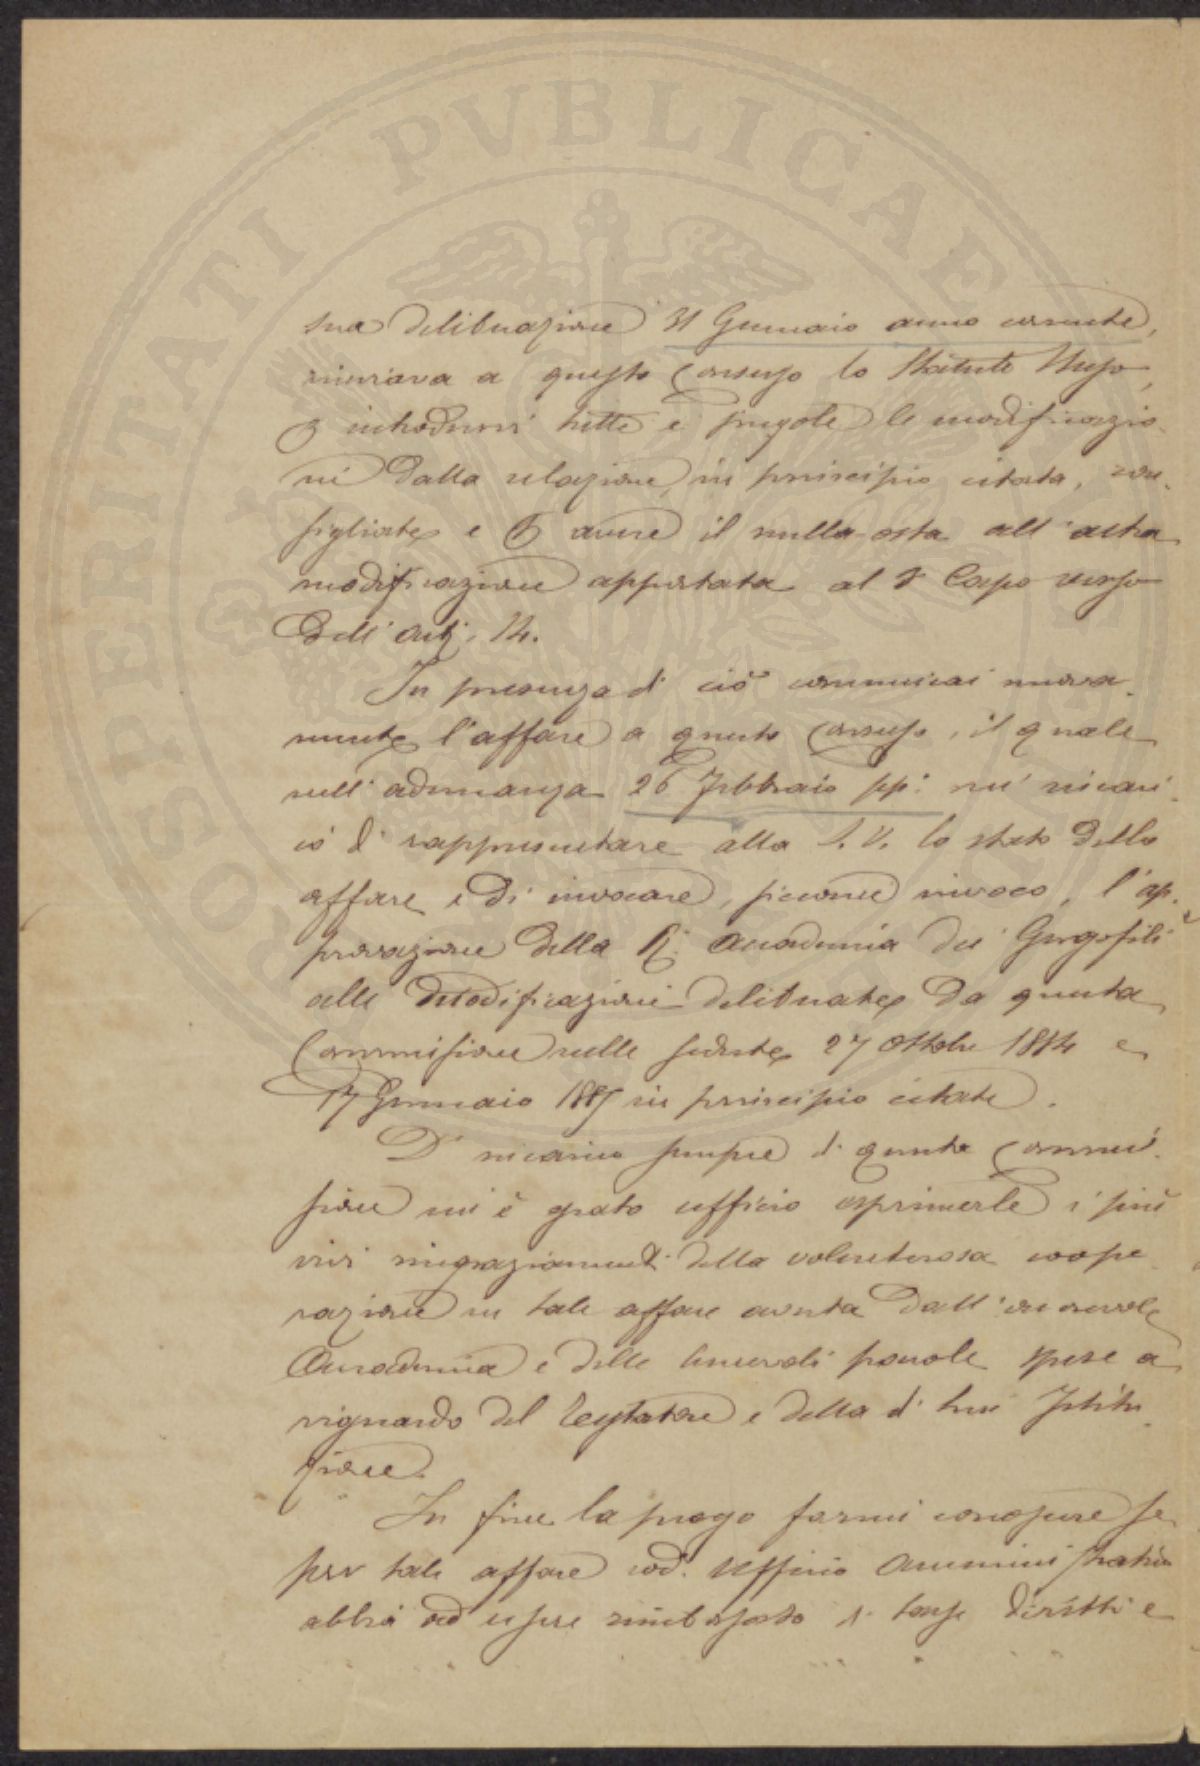 PROSPERITATI PVBLICAE
sua deliberazione 31 Gennaio anno corrente,
rinviava a questo Consesso lo Statuto stesso
introdurvi tutte e singole le modificazio-
ni dalla relazione, in principio citata, con-
sigliate e avere il nulla-osta all'altra
modificazione apportata al 2° Capo verso
dell'Art. 14.
In presenza di ciò comunicai nuova-
mente l'affare a questo Consesso, il quale
nell'adunanza 26 Febbraio pp: mi incari-
cò di rappresentare alla S. V. lo stato dello
affare e di invocare, siccome invoco, l'ap-
provazione della R. Accademia dei Georgofili
alle modificazioni deliberate da questa
Commissione nelle sedute 27 Ottobre 1884 e
17 Gennaio 1885 in principio citate.
D'incarico sempre di questa Commis-
sione mi è grato ufficio esprimerle i più
vivi ringraziamenti della volenterosa coope-
razione in tale affare avuta dall'onorevole
Accademia e delle benevoli parole spese a
riguardo del Testatore e della di lui Istitu-
zione.
In fine la prego farmi conoscere se
per tale affare cod. Ufficio Amministrativo
abbia ad essere rimborsato di tasse diritti e